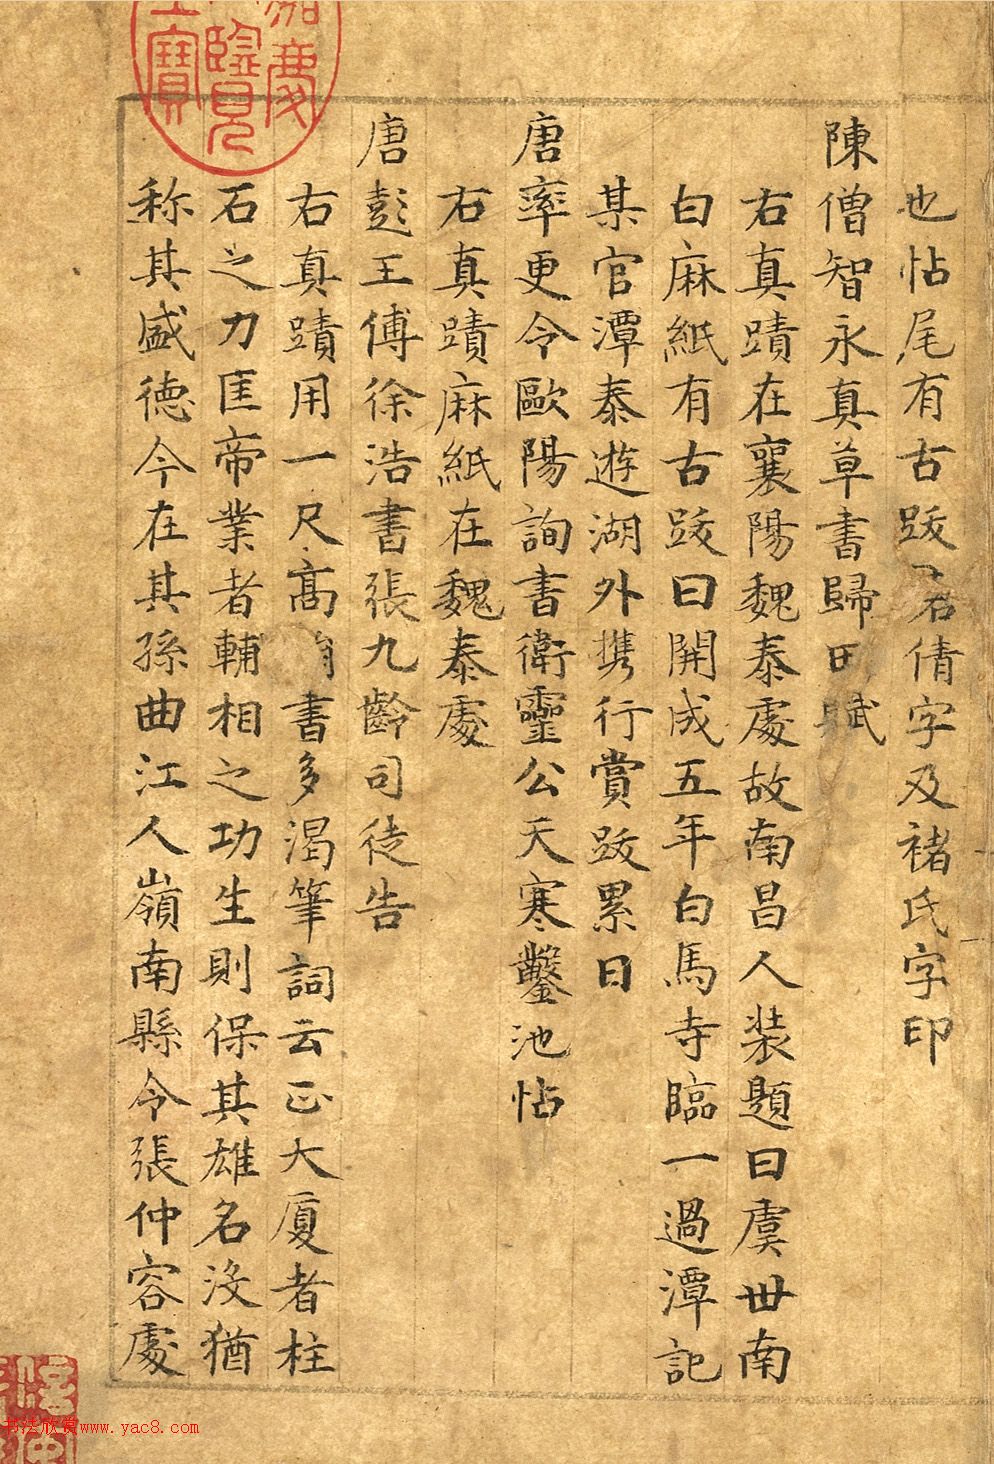 也帖尾有古跋君倩字及褚氏字印
陳僧智永真草書歸田賦
右真蹟在襄陽魏泰處故南昌人裝題曰虞世南
白麻紙有古跋曰開成五年白馬寺臨一過潭記
某官潭泰遊湖外携行賞跋累日
唐率更令歐陽詢書衛靈公天寒鑿池帖
右真蹟麻紙在魏泰處
唐彭王傅徐浩書張九齡司徒告
右真蹟用一尺高書多渴筆詞云正大厦者柱
石之力匡帝業者輔相之功生則保其雄名没猶
称其盛德今在其孫曲江人嶺南縣令張仲容處
嘉慶
覽
寶
书法欣赏www.yac8.com